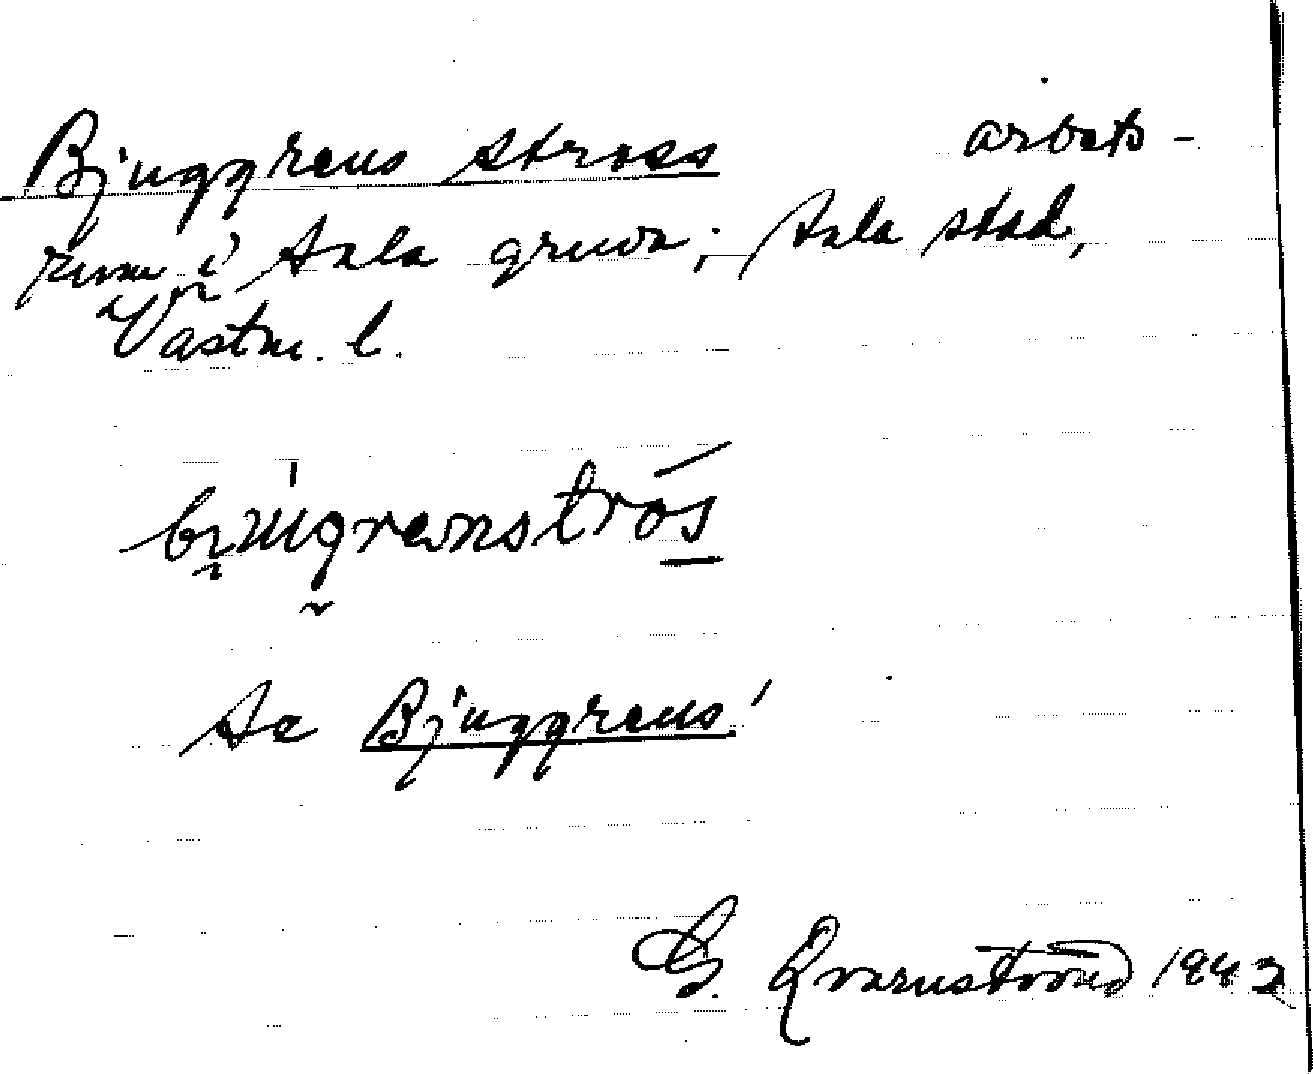 Bjuggrens stross arbets-
rum i Sala gruva; Sala stad,
Västm. l.
Se Bjuggrens!
G. Qvarnström 1942